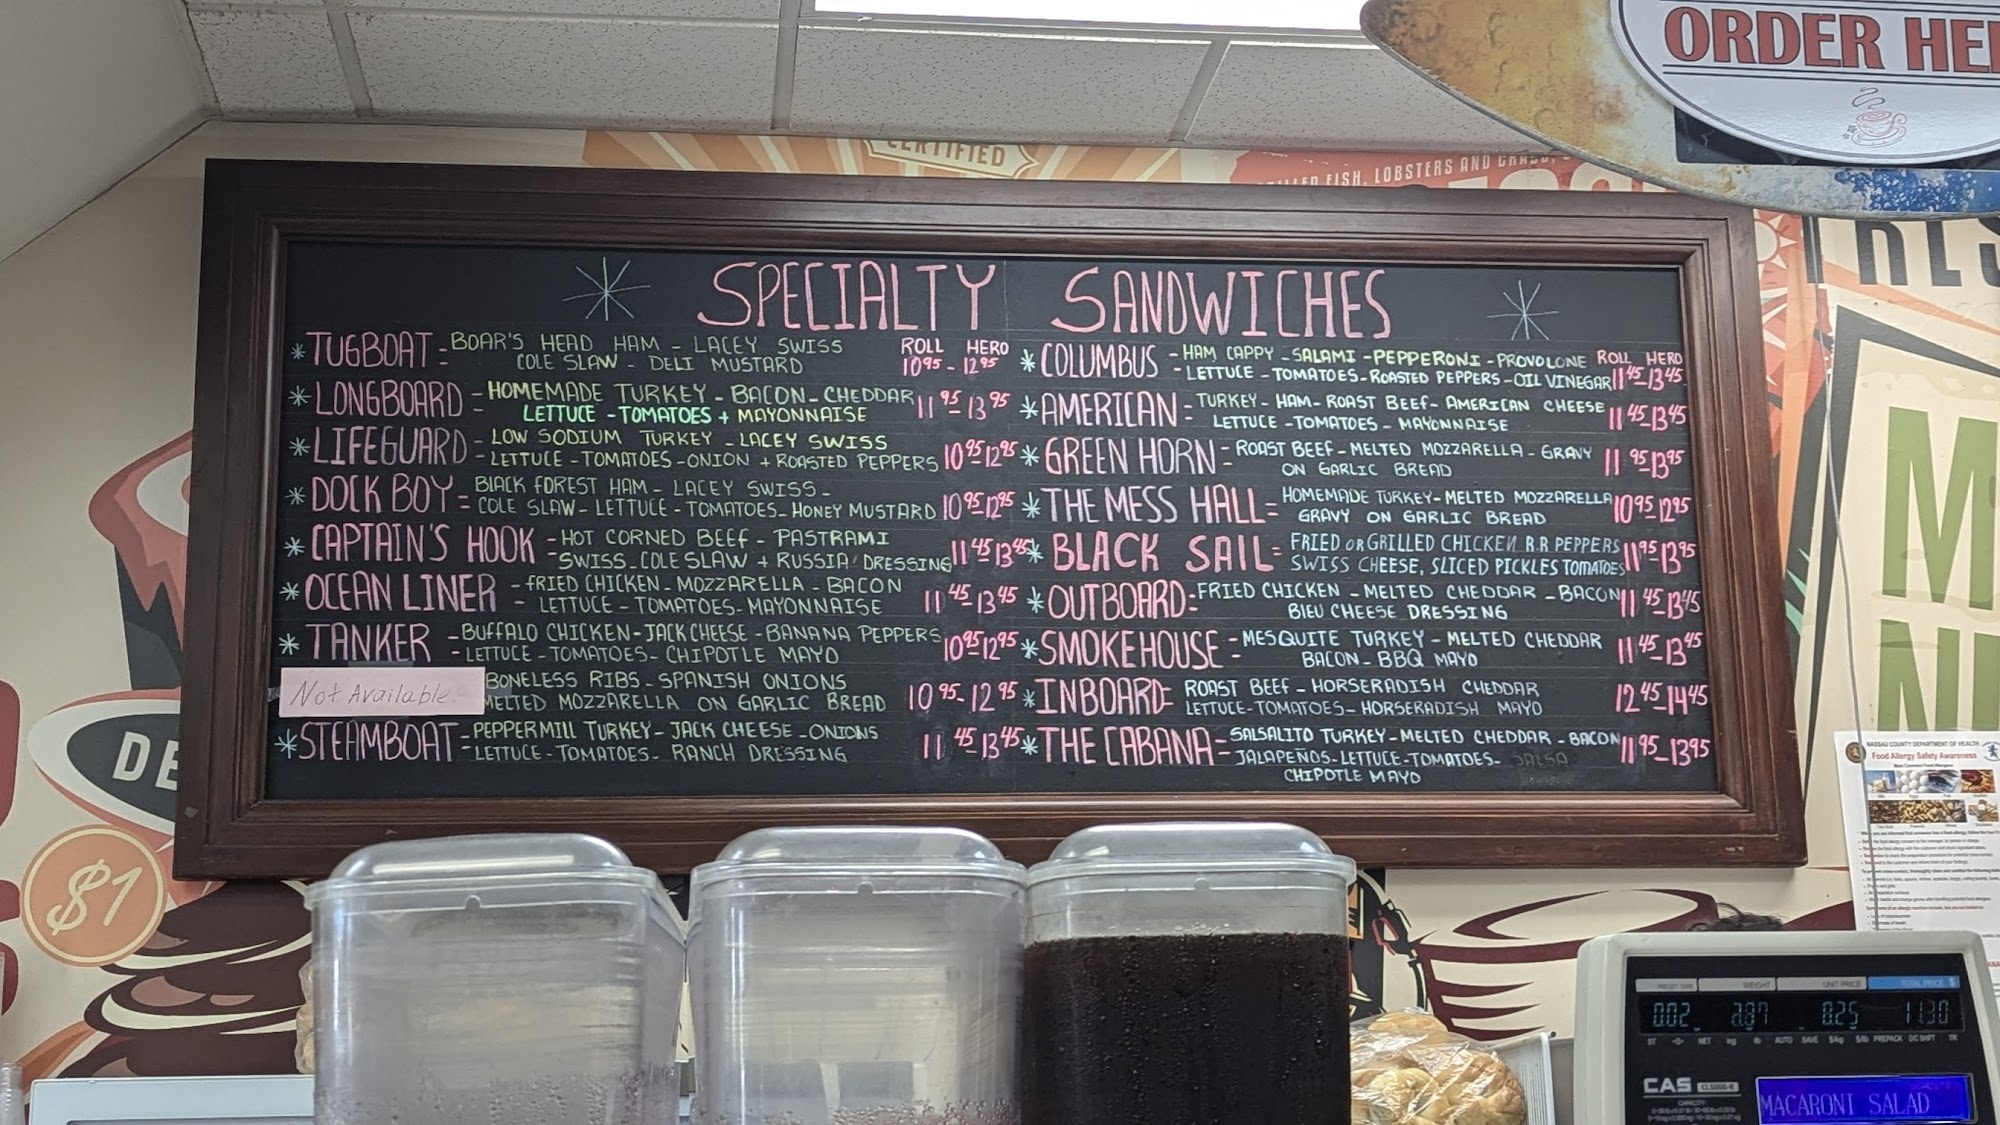 ORDER HE
CERTIFIED
FISH, LOBSTERS AND CRABS,
SPECIALTY SANDWICHES
ROLL HERO
* TUGBOAT = BOAR'S HEAD HAM - LACEY SWISS
COLE SLAW - DELI MUSTARD 10 95 - 12 95
* LONGBOARD - HOMEMADE TURKEY - BACON - CHEDDAR
- LETTUCE - TOMATOES + MAYONNAISE 11 95 - 13 95
* LIFEGUARD - LOW SODIUM TURKEY - LACEY SWISS
- LETTUCE - TOMATOES - ONION + ROASTED PEPPERS 10 95 - 12 95
* DOCK BOY = BLACK FOREST HAM - LACEY SWISS -
COLE SLAW - LETTUCE - TOMATOES - HONEY MUSTARD 10 95 - 12 95
* CAPTAIN'S HOOK - HOT CORNED BEEF - PASTRAMI
- SWISS - COLE SLAW + RUSSIA DRESSING 11 45 - 13 45
* OCEAN LINER - FRIED CHICKEN - MOZZARELLA - BACON
- LETTUCE - TOMATOES - MAYONNAISE 11 45 - 13 45
* TANKER - BUFFALO CHICKEN - JACK CHEESE - BANANA PEPPERS
- LETTUCE - TOMATOES - CHIPOTLE MAYO 10 95 - 12 95
Not Available.
BONELESS RIBS - SPANISH ONIONS
MELTED MOZZARELLA ON GARLIC BREAD 10 95 - 12 95
* STEAMBOAT = PEPPERMILL TURKEY - JACK CHEESE - ONIONS
LETTUCE - TOMATOES - RANCH DRESSING 11 45 - 13 45
* COLUMBUS - HAM CAPPY - SALAMI - PEPPERONI - PROVOLONE ROLL HERO
- LETTUCE - TOMATOES - ROASTED PEPPERS - OIL VINEGAR 11 45 - 13 45
* AMERICAN = TURKEY - HAM - ROAST BEEF - AMERICAN CHEESE
LETTUCE - TOMATOES - MAYONNAISE 11 45 - 13 45
* GREEN HORN = ROAST BEEF - MELTED MOZZARELLA - GRAVY
ON GARLIC BREAD 11 95 - 13 95
* THE MESS HALL = HOMEMADE TURKEY - MELTED MOZZARELLA
GRAVY ON GARLIC BREAD 10 95 - 12 95
* BLACK SAIL = FRIED OR GRILLED CHICKEN R.R PEPPERS
SWISS CHEESE, SLICED PICKLES TOMATOES 11 95 - 13 95
* OUTBOARD = FRIED CHICKEN - MELTED CHEDDAR - BACON
BLEU CHEESE DRESSING 11 45 - 13 45
* SMOKEHOUSE - MESQUITE TURKEY - MELTED CHEDDAR
BACON - BBQ MAYO 11 45 - 13 45
* INBOARD = ROAST BEEF - HORSERADISH CHEDDAR
LETTUCE - TOMATOES - HORSERADISH MAYO 12 45 - 14 45
* THE CABANA = SALSALITO TURKEY - MELTED CHEDDAR - BACON
JALAPEÑOS - LETTUCE - TOMATOES - SALSA 11 95 - 13 95
CHIPOTLE MAYO
DE
$1
M
N
NASSAU COUNTY DEPARTMENT OF HEALTH
Food Allergy Safety Awareness
WEIGHT UNIT PRICE TOTAL PRICE $
0.02 2.87 8.25 11.30
CAS
MACARONI SALAD